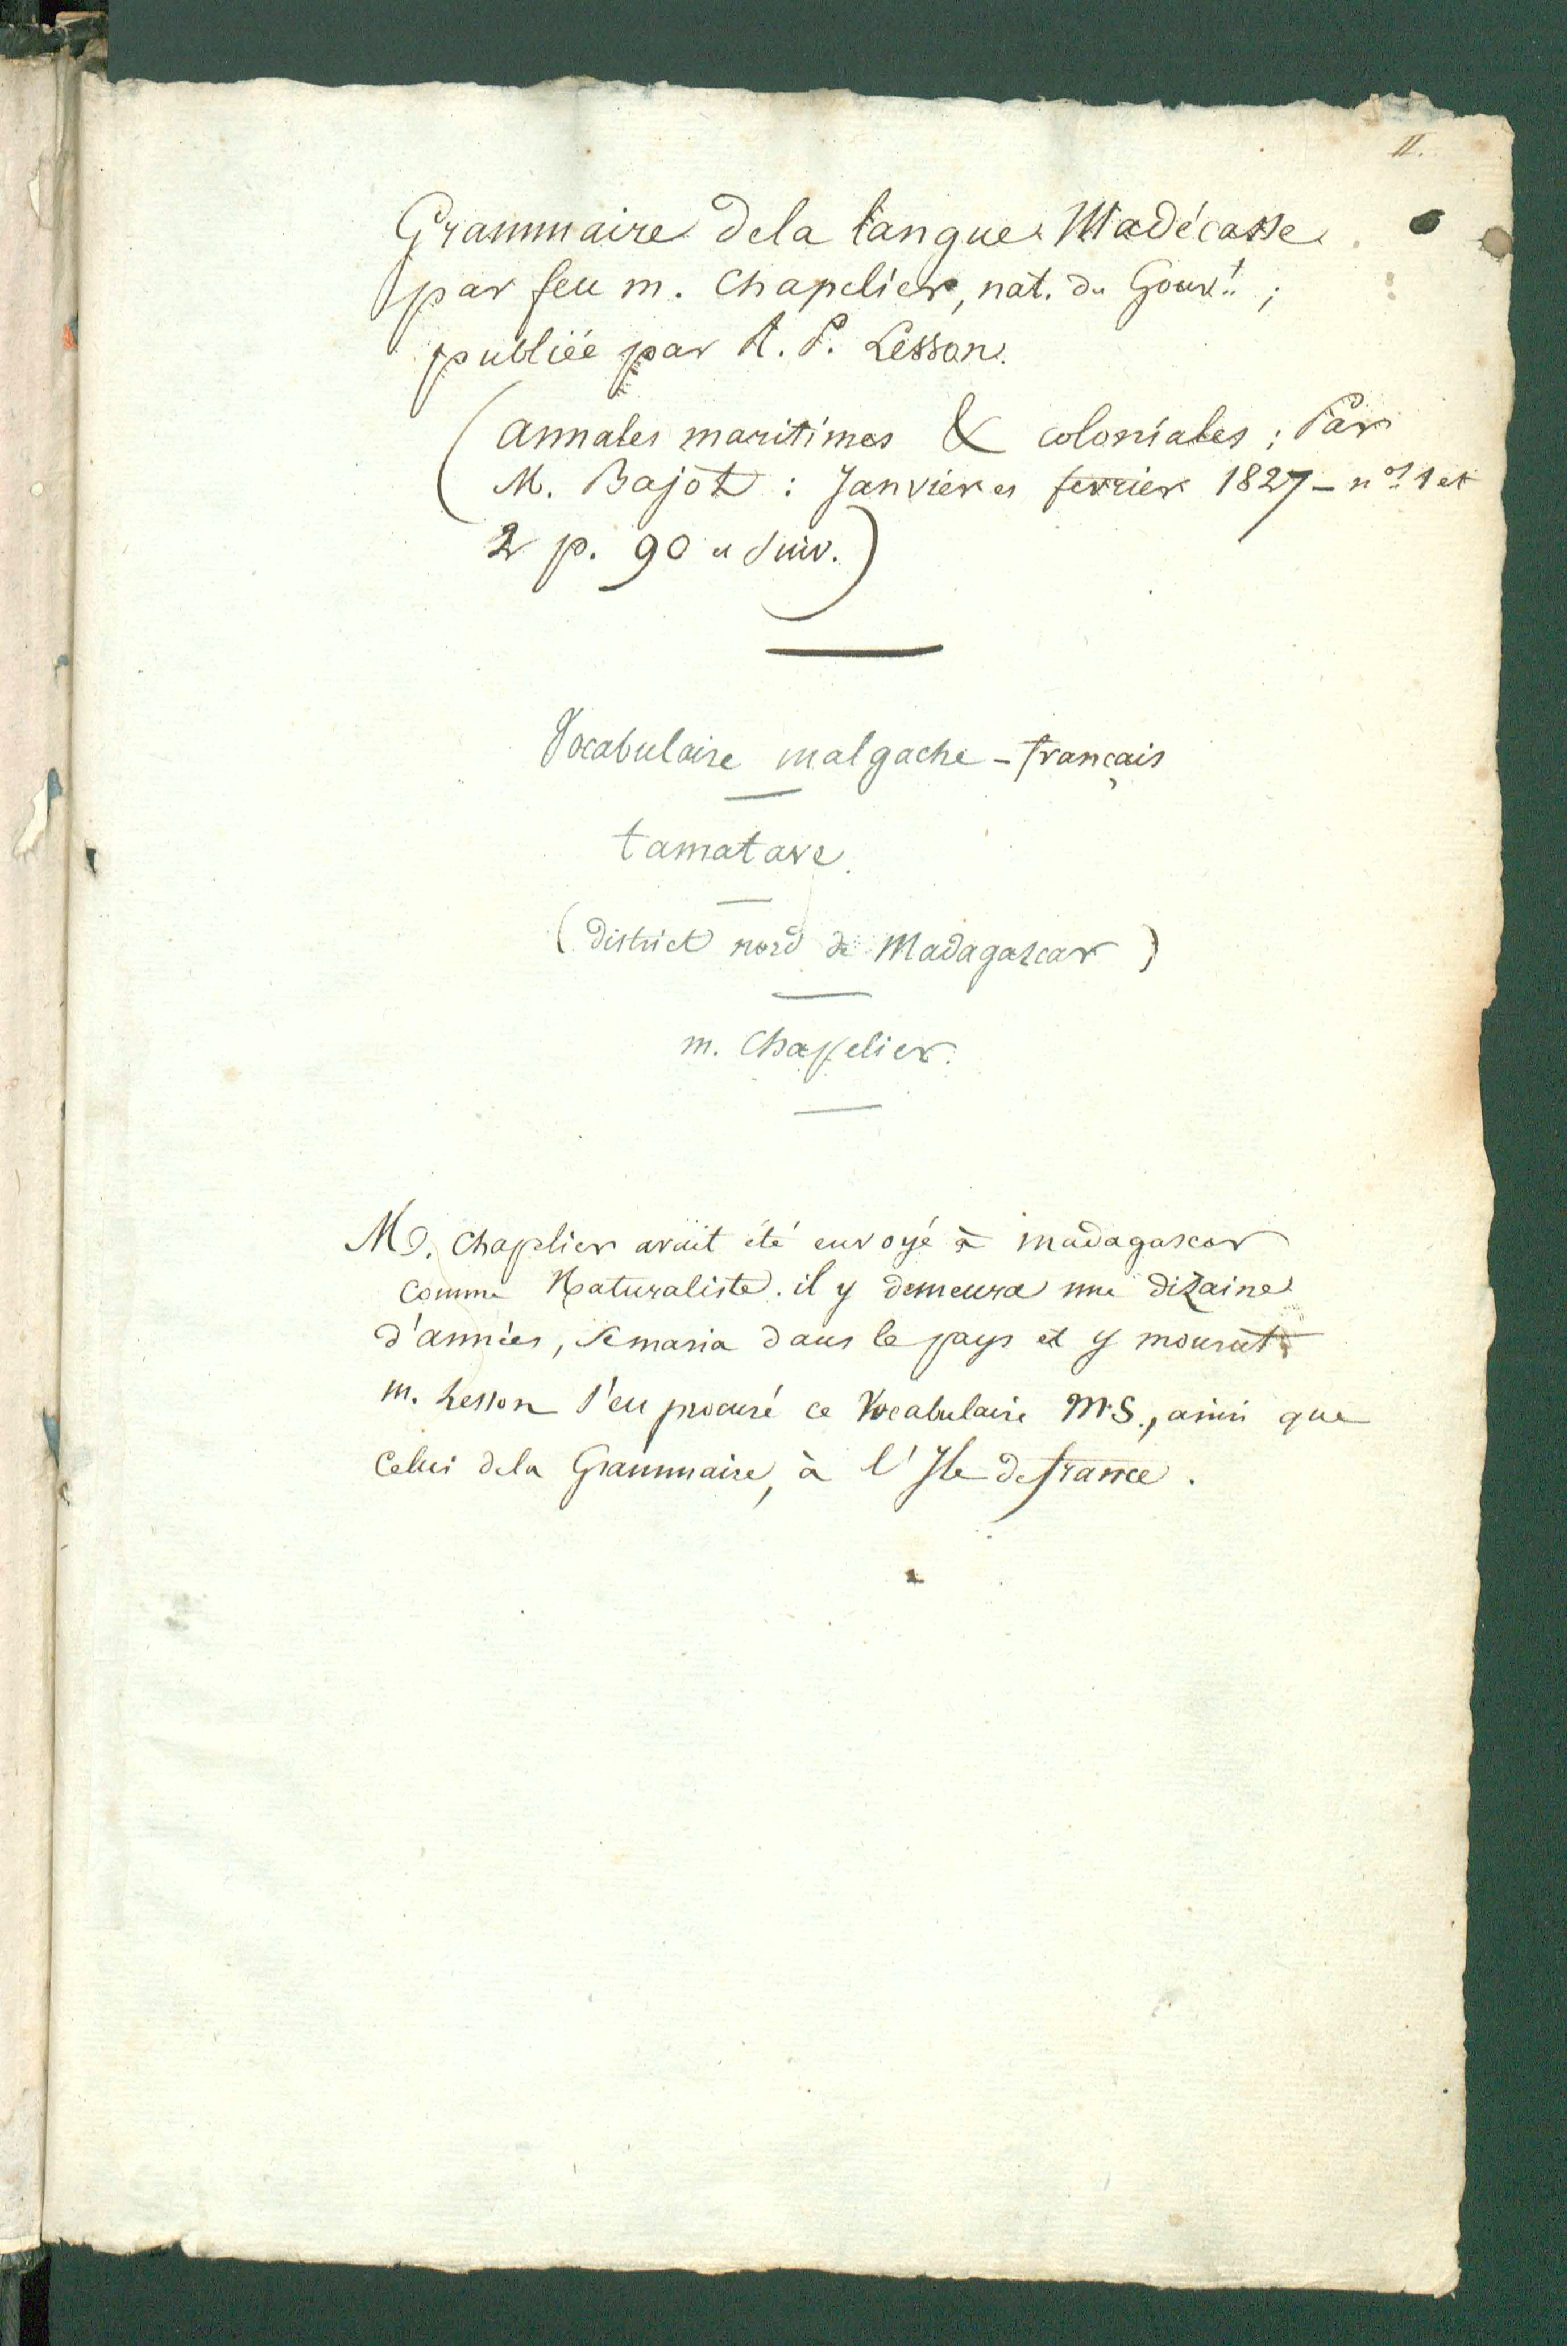 II.
Grammaire dela langue Madécasse
par feu m. Chapelier, nat. du Gouvt. ;
publiée par R. P. Lesson.
(annales maritimes & coloniales ; Par
M. Bajot : Janvier et fevrier 1827 - nos 1 et
2 p. 90 et suiv.)
Vocabulaire malgache - français
tamatave.
(district nord de Madagascar)
m. Chapelier.
Mr. Chaplier avait été envoyé à madagascar
comme Naturaliste. il y demeura une dizaine
d'années, se maria dans le pays et y mourut
m. Lesson s'eu procuré ce Vocabulaire M.S., ainsi que
celui dela Grammaire, à l'Ile de france.